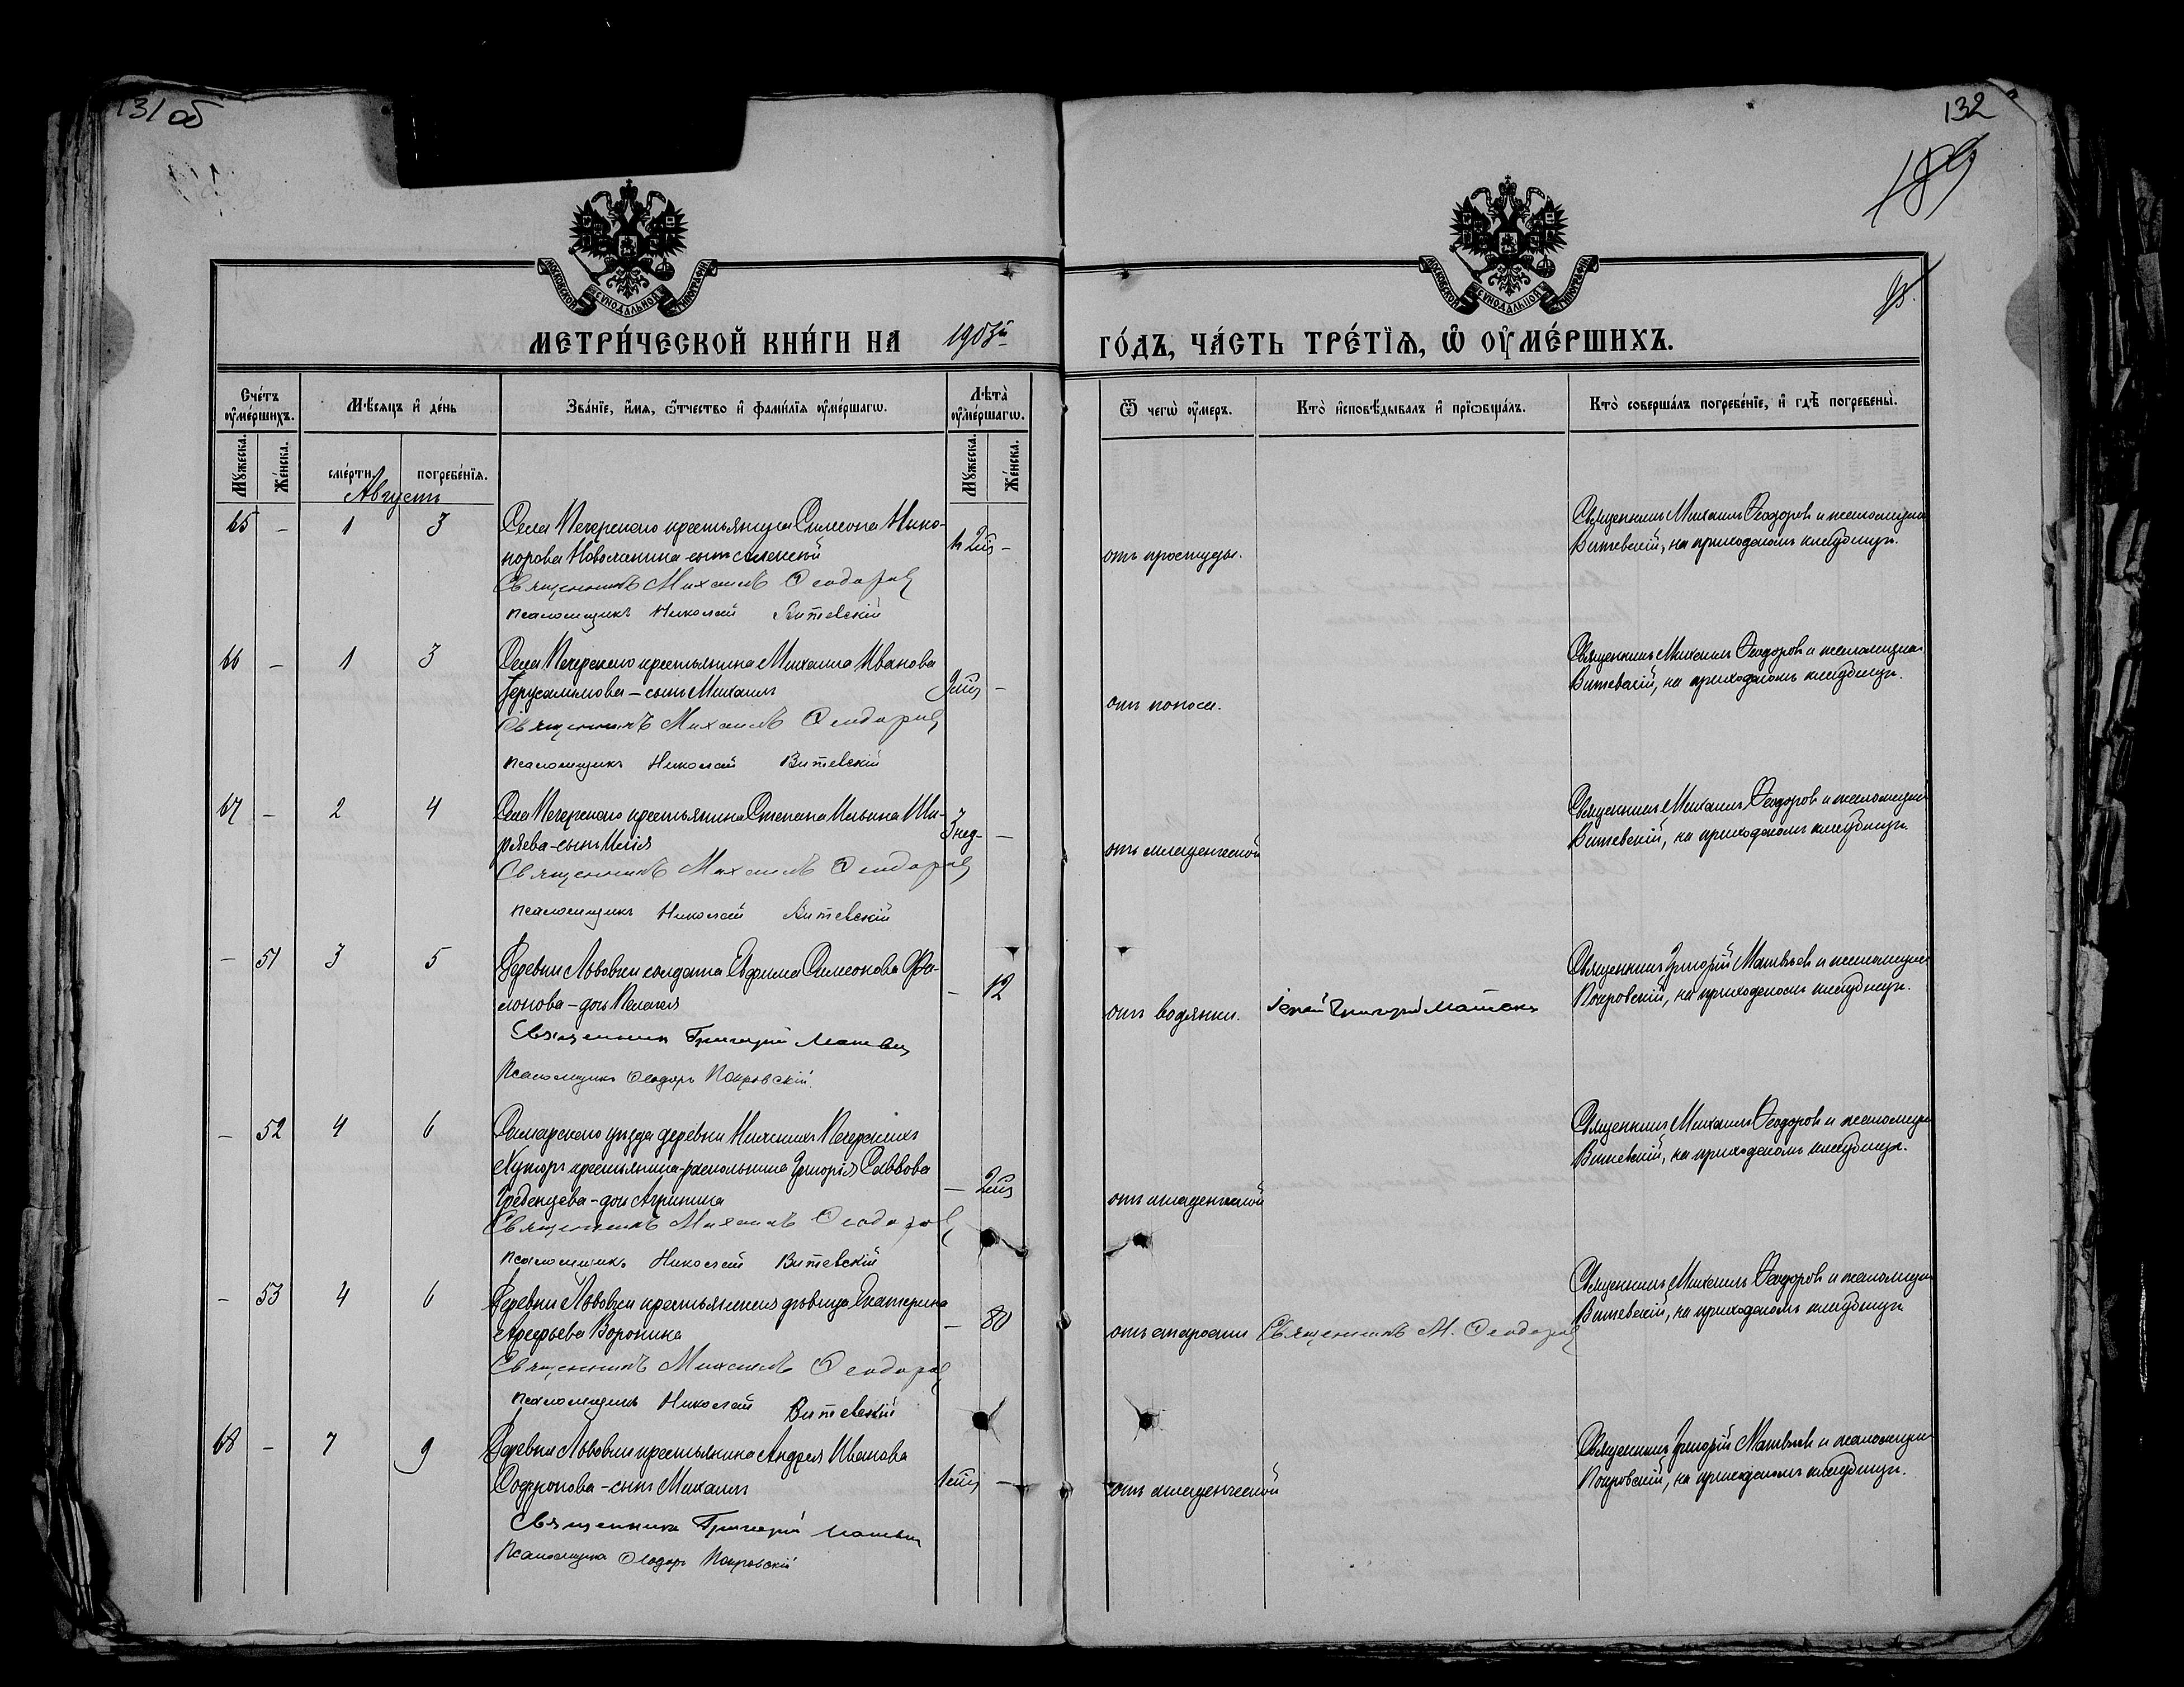 131 об
132
189
МОСКОВСКОЙ СѴНОДАЛЬНОЙ ТИПОГРАФІИ
МОСКОВСКОЙ СѴНОДАЛЬНОЙ ТИПОГРАФІИ
МЕТРИ́ЧЕСКОЙ КНИ́ГИ НА 1903й ГО́ДЪ, ЧА́СТЬ ТРЕ́ТЇѦ, Ѡ҆ ОУ҆МЕ́РШИХЪ.
Сче́тъ оу҆ме́ршихъ.
Мꙋ́жеска.
Же́нска.
Мѣ́сяцъ и҆ де́нь
сме́рти.
погребе́нїѧ.
Зва́нїе, и҆́мѧ, ѻ҆́тчество и҆ фами́лїѧ оу҆ме́ршагѡ.
Лѣ́та оу҆ме́ршагѡ.
Мꙋ́жеска.
Же́нска.
Ѿ чегѡ̀ оу҆́меръ.
Кто̀ и҆сповѣ́дывалъ и҆ прїѡбща́лъ.
Кто̀ соверша́лъ погребе́нїе, и҆ гдѣ̀ погребены̀.
Августъ
65 - 1 3 Села Печерскаго крестьянина Симеона Нико-
норова Новоженина - сынъ Алексей
Священникъ Михаилъ Ѳеодоровъ
Псаломщикъ Николай Витевскій
отъ простуды.
Священникъ Михаилъ Ѳеодоровъ и псаломщикъ
Витевскій, на приходскомъ кладбищѣ.
66 - 1 3 Села Печерскаго крестьянина Михаила Иванова
Іерусалимова - сынъ Михаилъ
Священникъ Михаилъ Ѳеодоровъ
Псаломщикъ Николай Витевскій
отъ поноса.
Священникъ Михаилъ Ѳеодоровъ и псаломщикъ
Витевскій, на приходскомъ кладбищѣ.
67 - 2 4 Села Печерскаго крестьянина Степана Ильина Ши-
ряева - сынъ Илія 3 нед. -
Священникъ Михаилъ Ѳеодоровъ
Псаломщикъ Николай Витевскій
отъ младенческой
Священникъ Михаилъ Ѳеодоровъ и псаломщикъ
Витевскій, на приходскомъ кладбищѣ.
- 51 3 5 Деревни Львовки солдата Евфима Симеонова Фи-
монова - дочь Пелагея - 12
Священникъ Григорій Матвѣевъ
Псаломщикъ Ѳеодоръ Покровскій.
отъ водянки.
Іерей Григорій Матвѣевъ
Священникъ Григорій Матвѣевъ и псаломщикъ
Покровскій, на приходскомъ кладбищѣ.
- 52 4 6 Самарскаго уѣзда деревни Нижнихъ Печерскихъ
Хуторъ крестьянина-раскольника Григорія Саввова
Гребенцева - дочь Агрипина
Священникъ Михаилъ Ѳеодоровъ
Псаломщикъ Николай Витевскій
отъ младенческой
Священникъ Михаилъ Ѳеодоровъ и псаломщикъ
Витевскій, на приходскомъ кладбищѣ.
- 53 4 6 Деревни Львовки крестьянская дѣвица Екатерина
Арефьева Воронина - 80
Священникъ Михаилъ Ѳеодоровъ
Псаломщикъ Николай Витевскій
отъ старости
Священникъ М. Ѳеодоровъ
Священникъ Михаилъ Ѳеодоровъ и псаломщикъ
Витевскій, на приходскомъ кладбищѣ.
68 - 7 9 Деревни Львовки крестьянина Андрея Иванова
Софронова - сынъ Михаилъ
Священникъ Григорій Матвѣевъ
Псаломщикъ Ѳеодоръ Покровскій
отъ младенческой
Священникъ Григорій Матвѣевъ и псаломщикъ
Покровскій, на приходскомъ кладбищѣ.